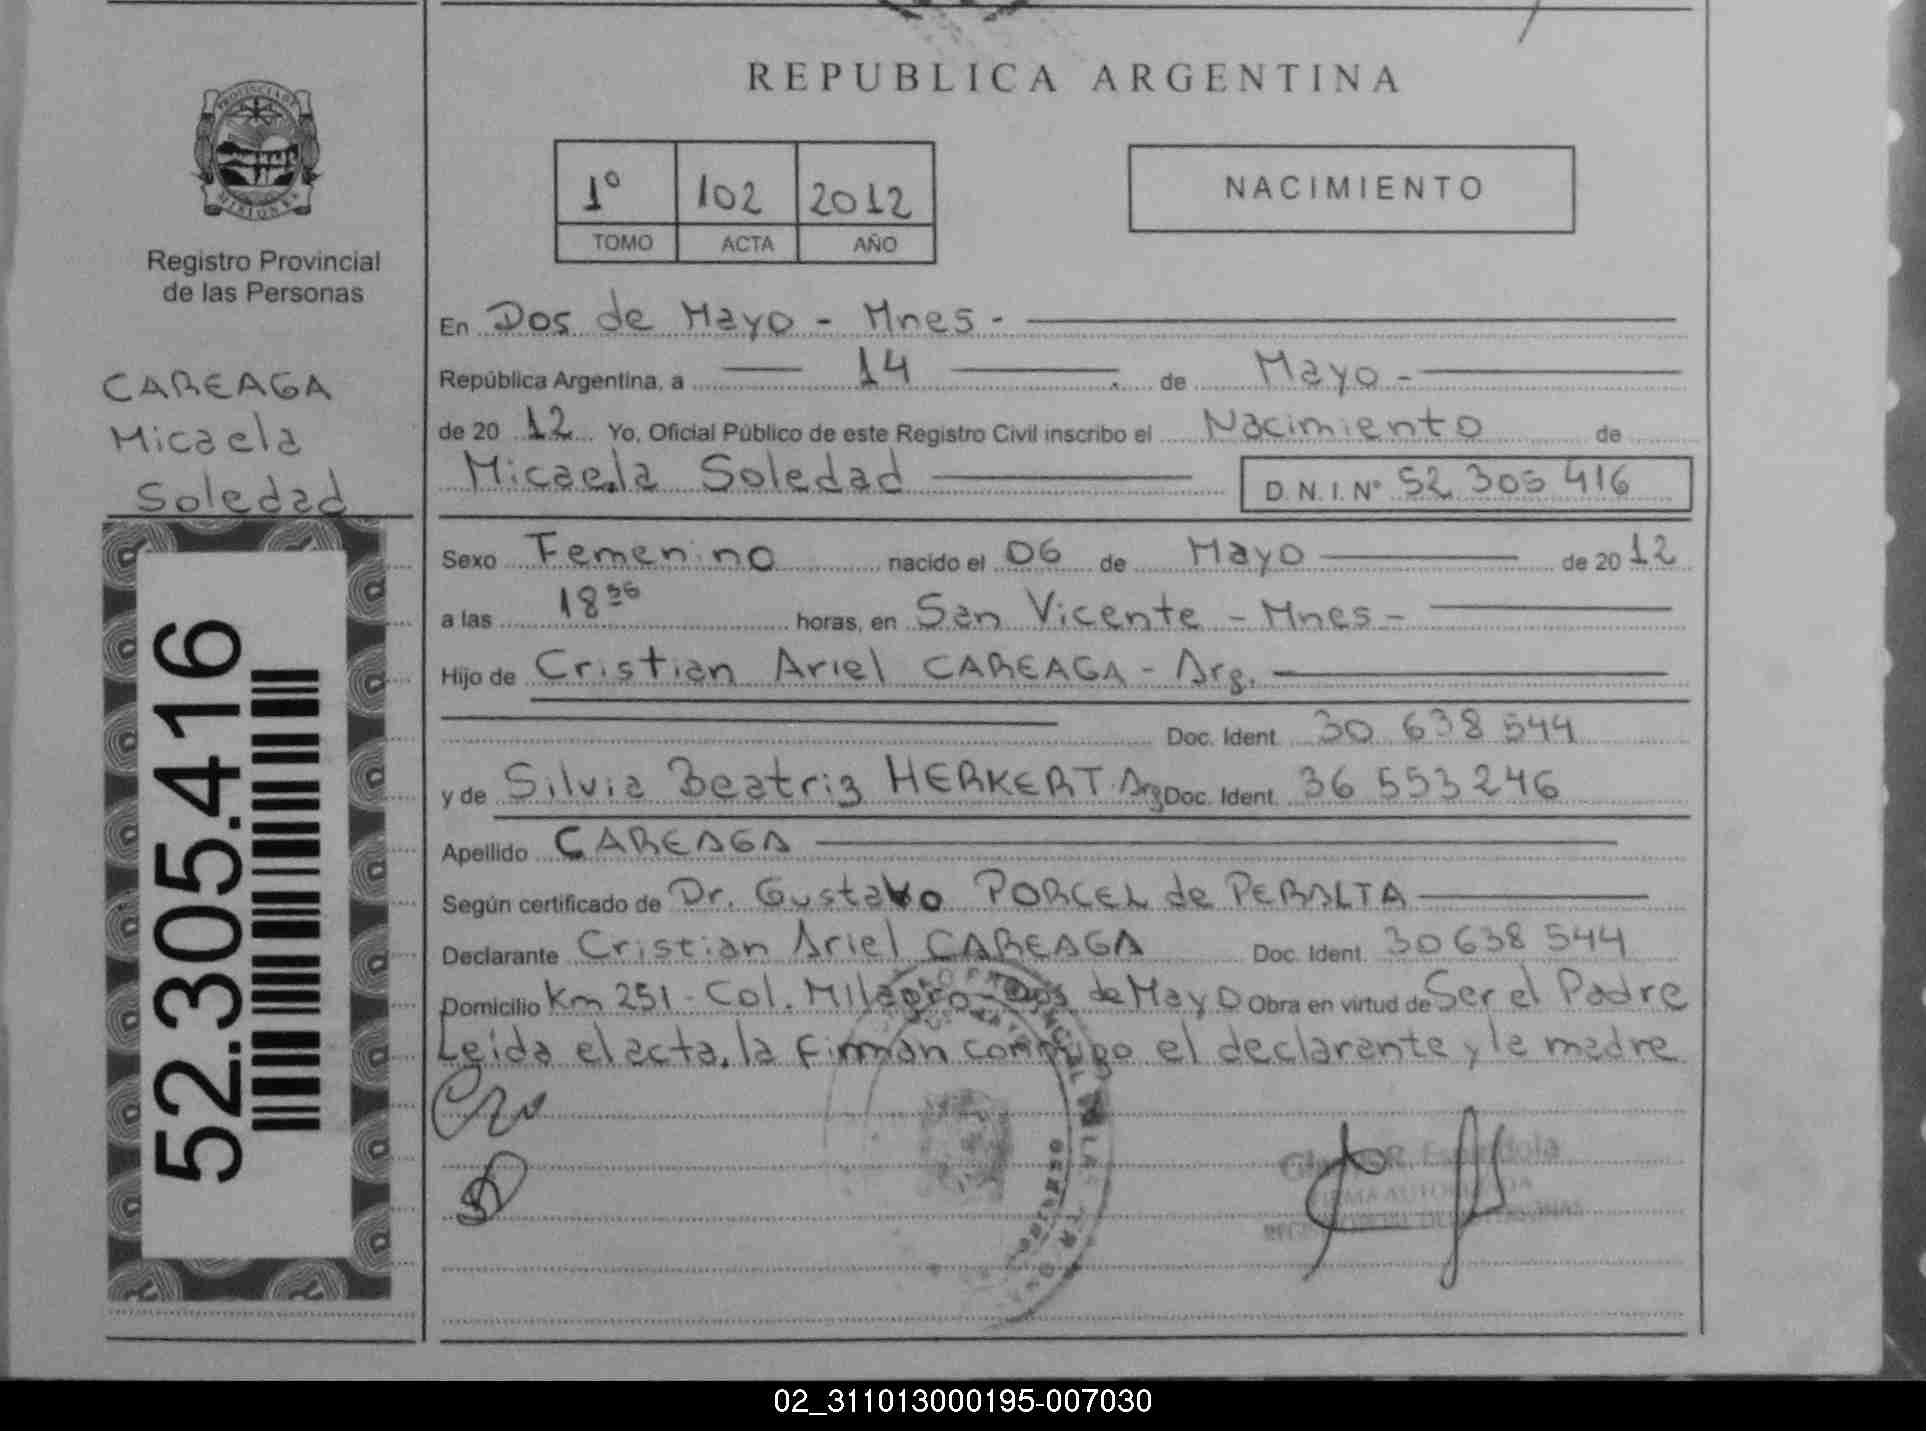 REPUBLICA ARGENTINA
PROVINCIA DE
MISIONES
Registro Provincial
de las Personas
CAREAGA
Micaela
Soledad
52.305.416
1º 102 2012
TOMO ACTA AÑO
NACIMIENTO
En Dos de Mayo - Mnes -
República Argentina, a 14 de Mayo -
de 20 12 Yo, Oficial Público de este Registro Civil inscribo el Nacimiento de
Micaela Soledad D.N.I. Nº 52 305 416
Sexo Femenino nacido el 06 de Mayo de 20 12
a las 18 36 horas, en San Vicente - Mnes -
Hijo de Cristian Ariel CAREAGA - Arg.
Doc. Ident. 30 638 544
y de Silvia Beatriz HERKERT Arg Doc. Ident. 36 553 246
Apellido CAREAGA
Según certificado de Dr. Gustavo PORCEL de PERALTA
Declarante Cristian Ariel CAREAGA Doc. Ident. 30638 544
Domicilio Km 251 - Col. Milagro - Dos de Mayo Obra en virtud de Ser el Padre
Leida el acta, la firman conmigo el declarante y la madre
02_311013000195-007030